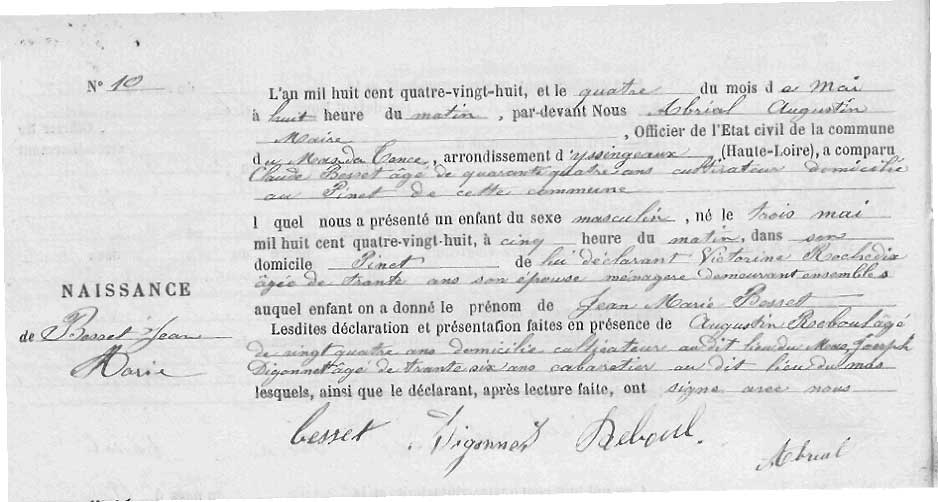 N° 10
L'an mil huit cent quatre-vingt-huit, et le quatre du mois de Mai
à huit heure du matin, par-devant Nous Abrial Augustin
Maire, Officier de l'Etat civil de la commune
du Mas de Tence, arrondissement d'yssingeaux (Haute-Loire), a comparu
Claude Besset âgé de quarante quatre ans cultivateur domicilié
au Pinet de cette commune
l quel nous a présenté un enfant du sexe masculin, né le trois mai
mil huit cent quatre-vingt-huit, à cinq heure du matin, dans son
domicile Pinet de lui déclarant Victorine Rochedix
âgée de trante ans son épouse ménagere demeurant ensembles
auquel enfant on a donné le prénom de Jean Marie Besset
Lesdites déclaration et présentation faites en présence de Augustin Reboul âgé
de vingt quatre ans domicilié cultivateur au dit lieu du Mas, Joseph
Digonnet âgé de trante six ans cabaretier au dit lieu du mas
lesquels, ainsi que le déclarant, après lecture faite, ont signé avec nous
NAISSANCE
de Besset Jean
Marie
besset Digonnet Reboul
Abrial